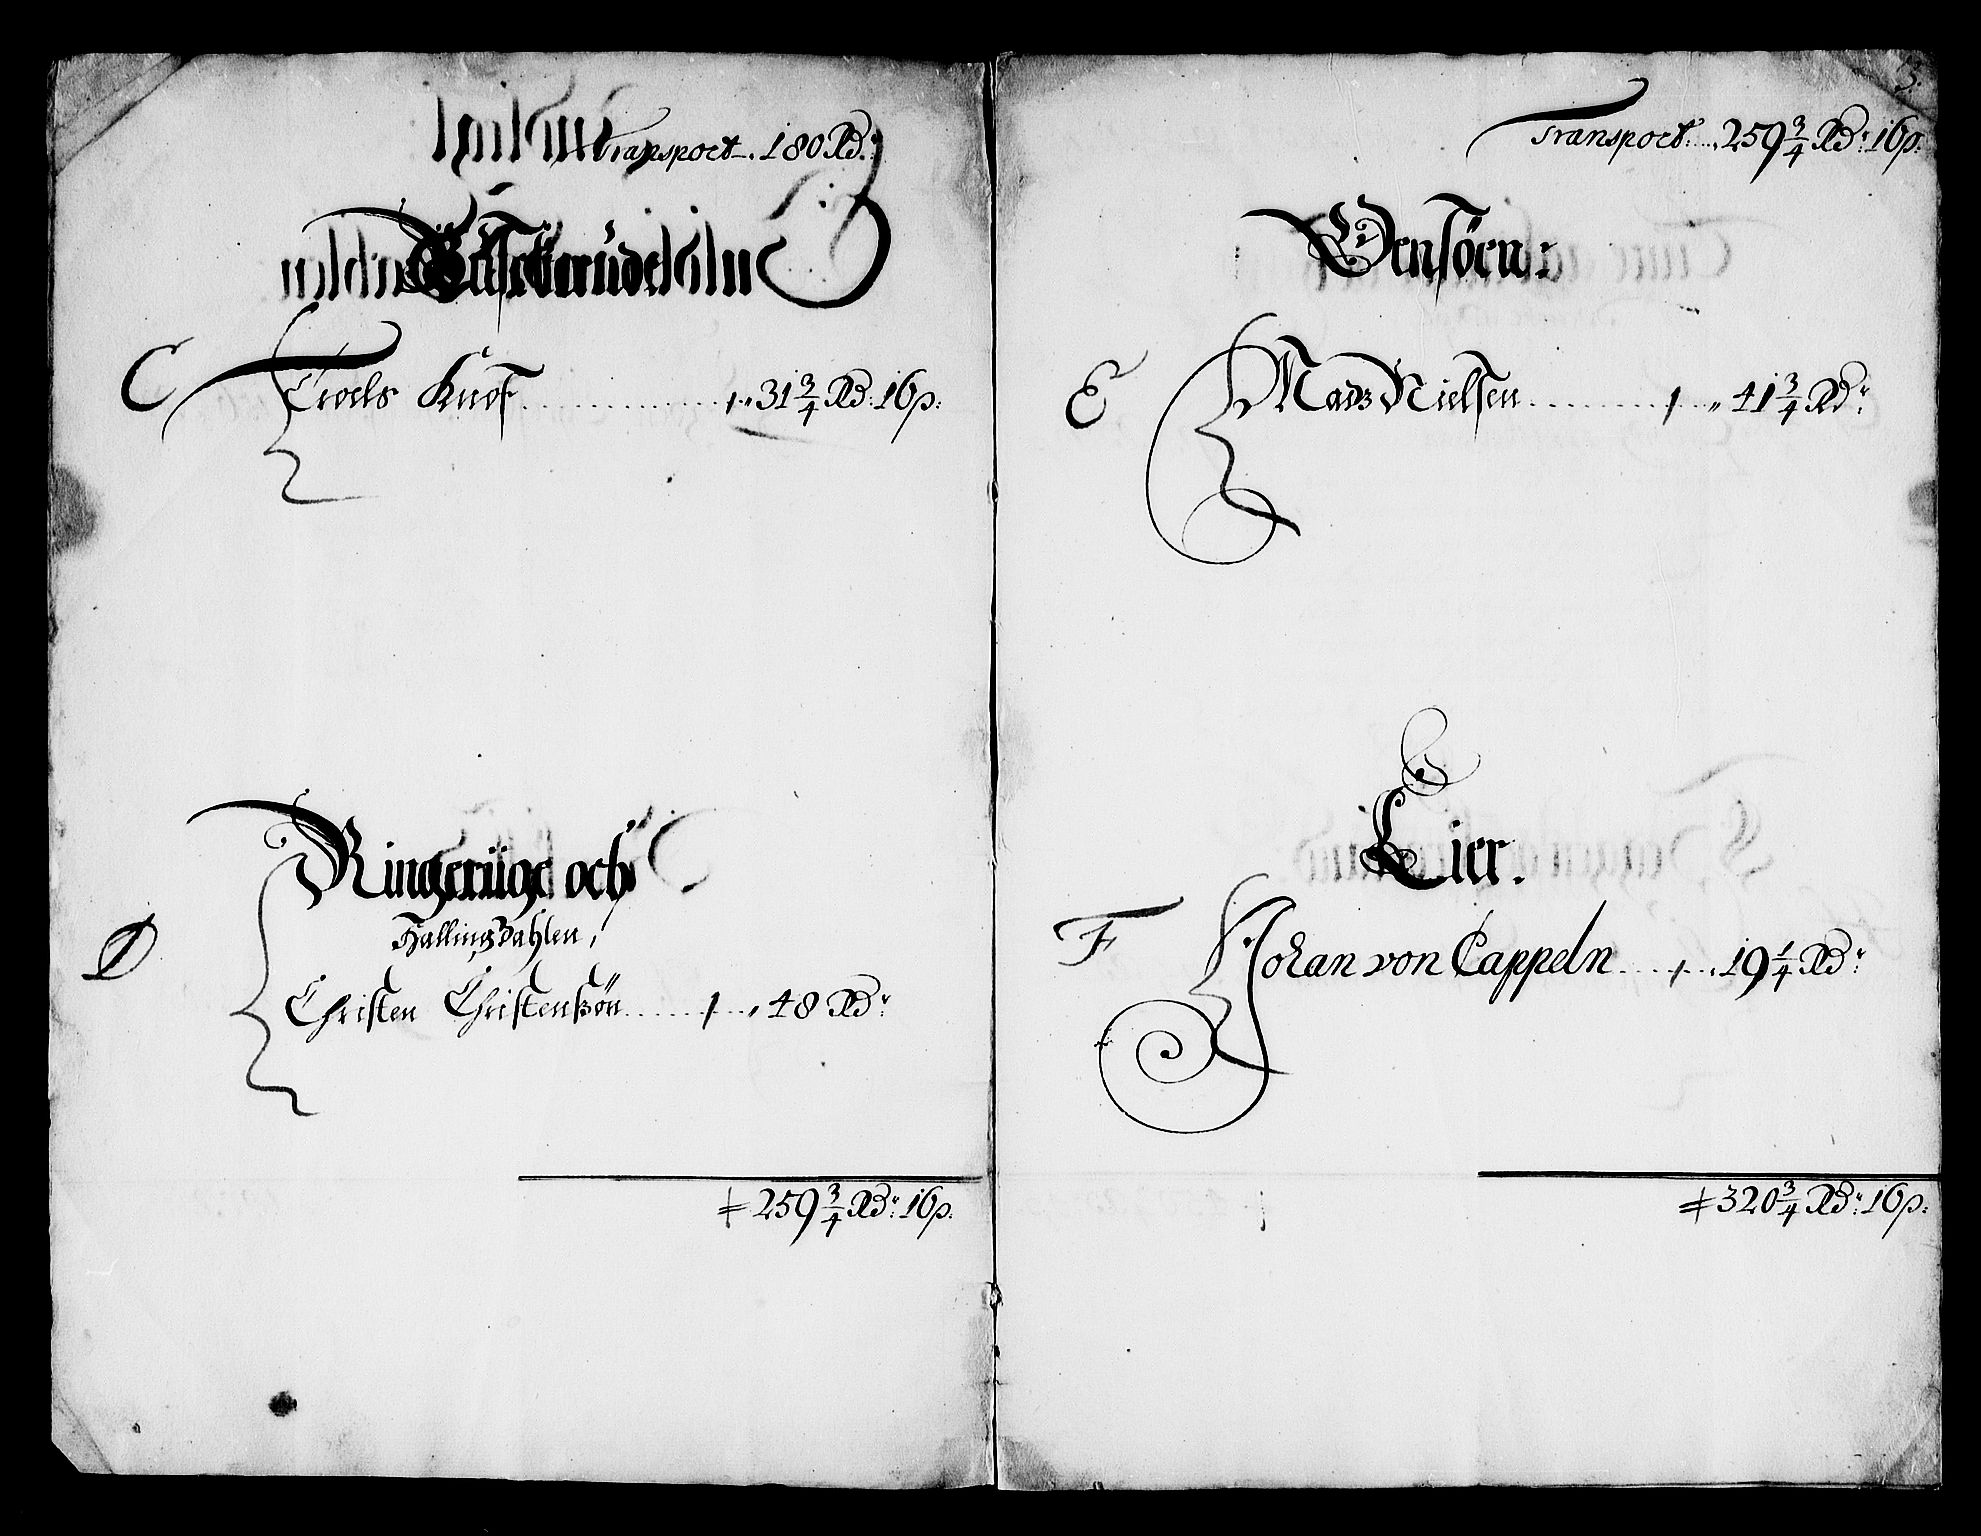 Transport 180 Rd:
C
Troels Knof ............ 31 3/4 Rd: 16 β:
Ringerüge och
Hallingdahlen,
D
Christen Christensßøn ........ 48 Rdr:
259 3/4 Rdr: 16 β:
3.
Transport: ... 259 3/4 Rdr: 16 β:
E
Madz Nielsen ............ 41 3/4 Rdr:
Lier.
F
Johan von Cappeln ....... 19 1/4 Rdr:
320 3/4 Rdr: 16 β: